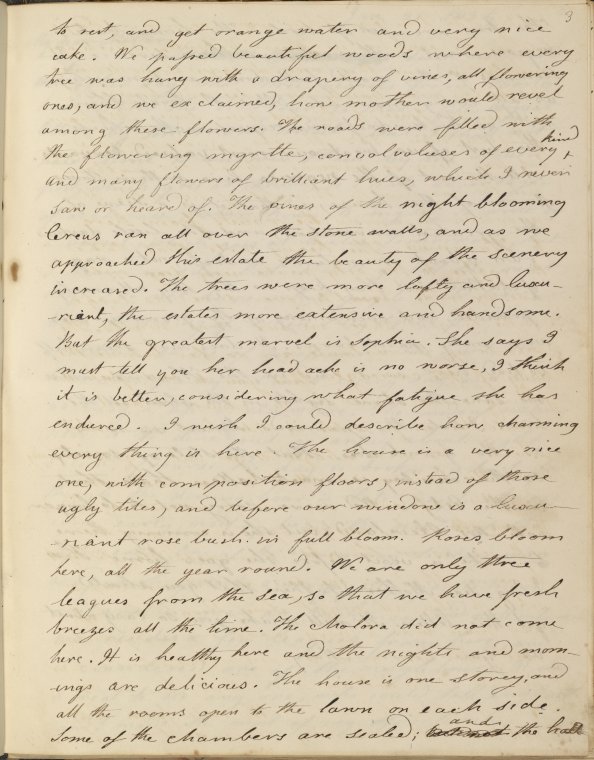 3
to rest, and get orange water and very nice
cake. We passed beautiful woods where every
tree was hung with a drapery of vines, all flowering
ones, and we exclaimed, how mother would revel
among these flowers. The roads were filled with
the flowering myrtle, convolvoluses of every kind
and many flowers of brilliant hues, which I never
saw or heard of. The vines of the night blooming
Cereus ran all over the stone walls, and as we
approached this estate the beauty of the scenery
increased. The trees were more lofty and luxu-
-riant, the estates more extensive and handsome.
But the greatest marvel is Sophia. She says I
must tell you her head ache is no worse, I think
it is better, considering what fatigue she has
endured. I wish I could describe how charming
every thing is here. The house is a very nice
one, with composition floors, instead of those
ugly tiles, and before our window is a luxu-
-riant rose bush in full bloom. Roses bloom
here, all the year round. We are only three
leagues from the sea, so that we have fresh
breezes all the time. The cholora did not come
here. It is healthy here and the nights and morn-
ings are delicious. The house is one storey, and
all the rooms open to the lawn on each side.
Some of the chambers are sealed; and the hall